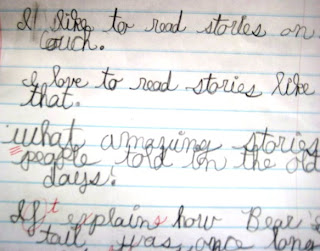 I like to read stories on
couch.
I love to read stories like
that.
What amazing stories
people told in the old
days!
It explains how Bear's
tail was once long